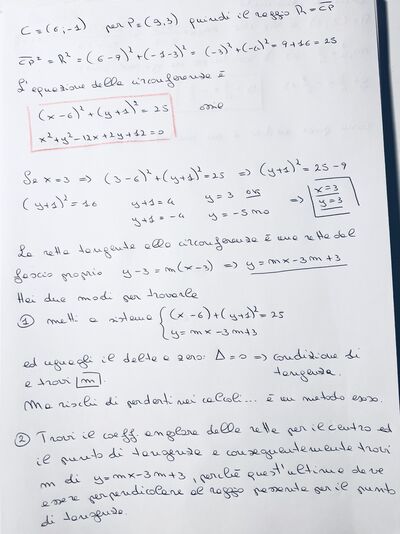 C = (6;-1) per P=(9,3) quindi il raggio R = CP
CP² = R² = (6-9)² + (-1-3)² = (-3)² + (-4)² = 9+16 = 25
L'equazione della circonferenza è
(x-6)² + (y+1)² = 25 ossia
x²+y²-12x+2y+12=0
Se x=3 => (3-6)² + (y+1)² = 25 => (y+1)² = 25-9
(y+1)² = 16 y+1=4 y=3 => x=3
y+1=-4 y=-5 no y=3
La retta tangente alla circonferenza è una retta del
fascio proprio y-3=m(x-3) => y=mx-3m+3
Hai due modi per trovarla
① metti a sistema { (x-6)+(y+1)²=25
y=mx-3m+3
ed uguagli il delta a zero: Δ=0 => condizione di
e trovi m tangenza.
Ma rischi di perderti nei calcoli... è un metodo
② Trovi il coeff angolare della retta per il centro ed
il punto di tangenza e conseguentemente trovi
m di y=mx-3m+3, perché quest'ultima deve
essere perpendicolare al raggio passante per il punto
di tangenza.